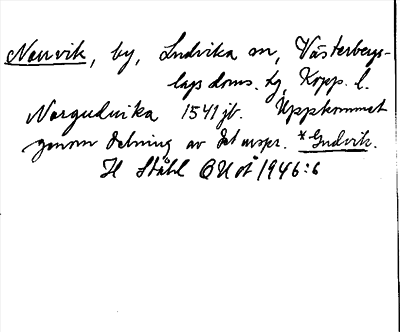 Norrvik, by, Ludvika sn, Västerbergs-
lags doms. tg, Kopp. l.
Norguduika 1541 jb. Uppkommet
genom delning av det urspr. *Gudvik.
H Ståhl OUoÅ 1946:6